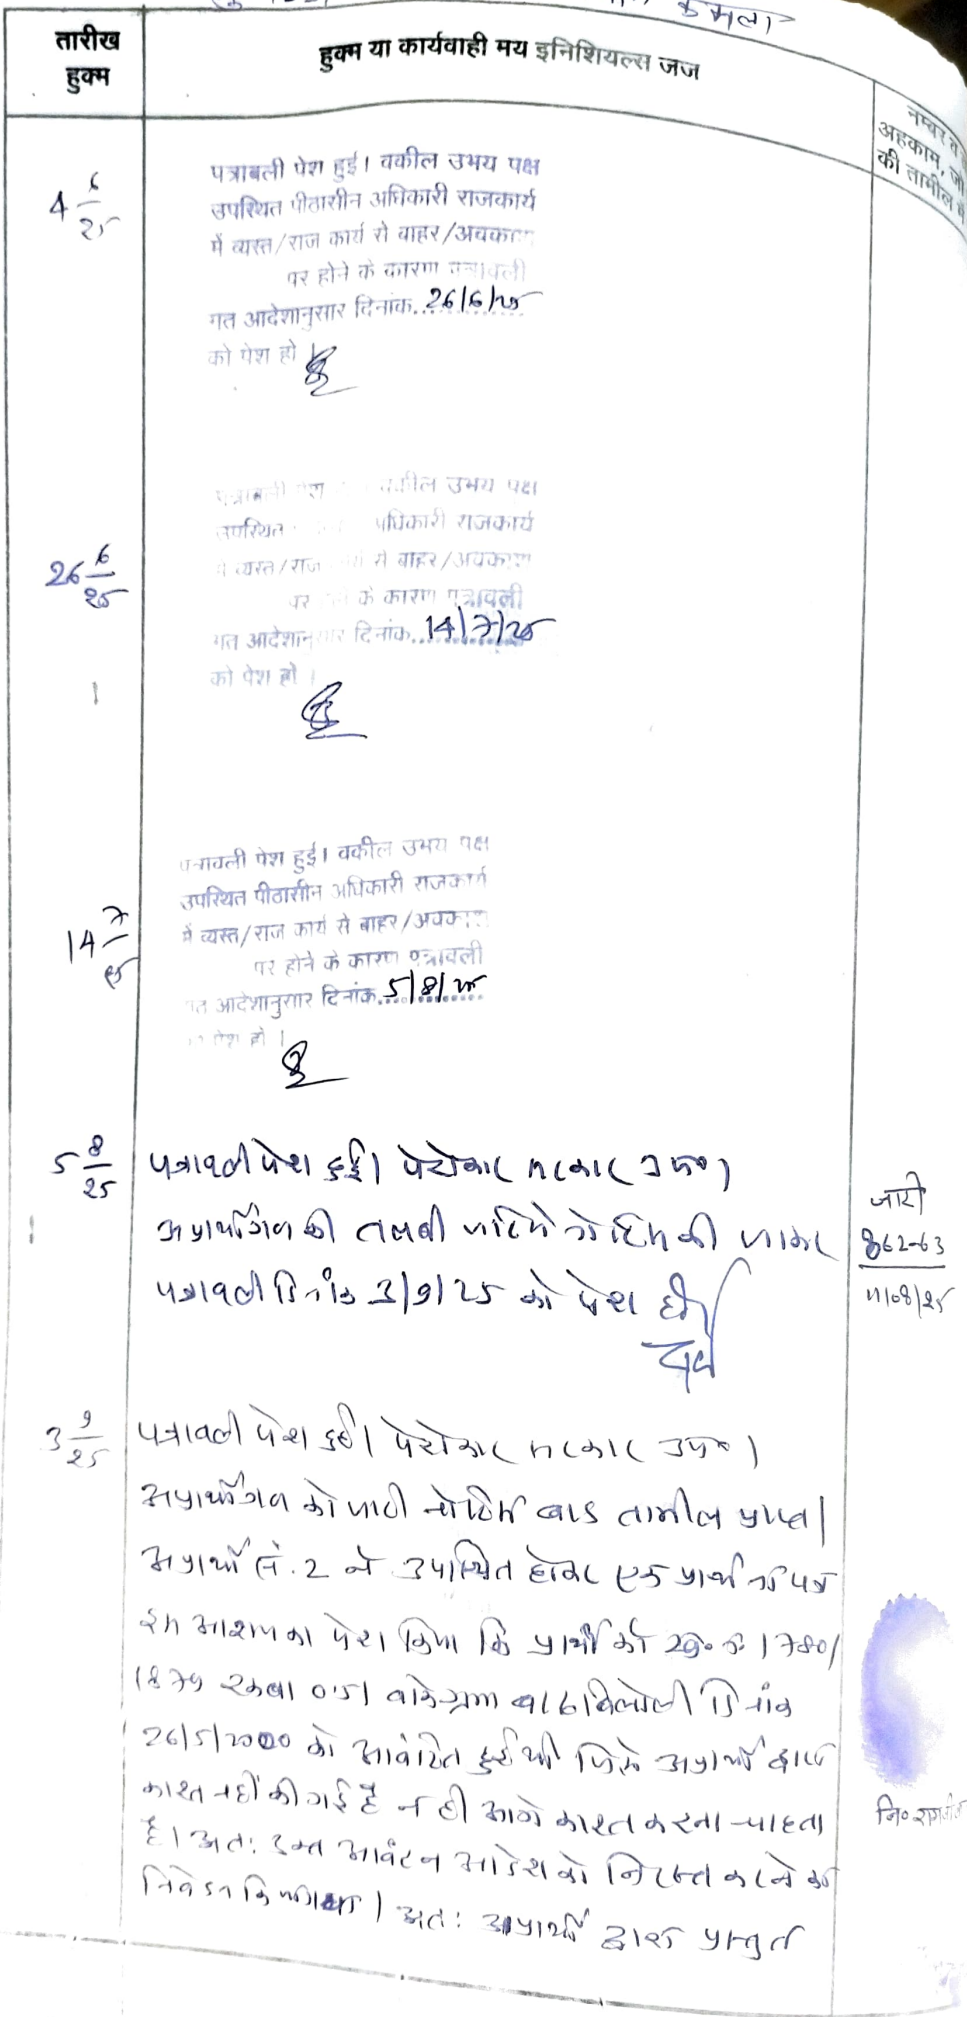 कमला
तारीख
हुक्म
हुक्म या कार्यवाही मय इनिशियल्स जज
नम्बर व
अहकाम, जो
की तामील में
4 6/25
पत्रावली पेश हुई। वकील उभय पक्ष
उपस्थित पीठासीन अधिकारी राजकार्य
में व्यस्त/राज कार्य से बाहर/अवकाश
पर होने के कारण पत्रावली
गत आदेशानुसार दिनांक 26/6/25
को पेश हो।
26 6/25
पत्रावली पेश वकील उभय पक्ष
उपस्थित अधिकारी राजकार्य
में व्यस्त/राज कार्य से बाहर/अवकाश
पर होने के कारण पत्रावली
गत आदेशानुसार दिनांक 14/7/25
को पेश हो।
14 7/25
पत्रावली पेश हुई। वकील उभय पक्ष
उपस्थित पीठासीन अधिकारी राजकार्य
में व्यस्त/राज कार्य से बाहर/अवकाश
पर होने के कारण पत्रावली
गत आदेशानुसार दिनांक 5/8/25
को पेश हो।
5 8/25
पत्रावली पेश हुई। पेरोकार सरकार उप०।
अप्रार्थीगण की तलबी जरिये नोटिस की जाकर
पत्रावली दिनांक 3/9/25 को पेश हो।
जारी
862-63
11/08/25
3 9/25
पत्रावली पेश हुई। पेरोकार सरकार उप०।
अप्रार्थीगण को जारी नोटिस बाद तामील प्राप्त।
अप्रार्थी सं. 2 ने उपस्थित होकर एक प्रार्थना पत्र
इस आशय का पेश किया कि प्रार्थी को ख० नं० 1780/
1879 रकबा 0.51 वाके ग्राम दिनांक
26/5/2000 को आवंटित हुई थी जिसे अप्रार्थी द्वारा
काश्त नहीं की गई है न ही आगे काश्त करना चाहता
है। अतः उक्त आवंटन आदेश को निरस्त करने का
निवेदन किया गया। अतः अप्रार्थी द्वारा प्रस्तुत
नि०